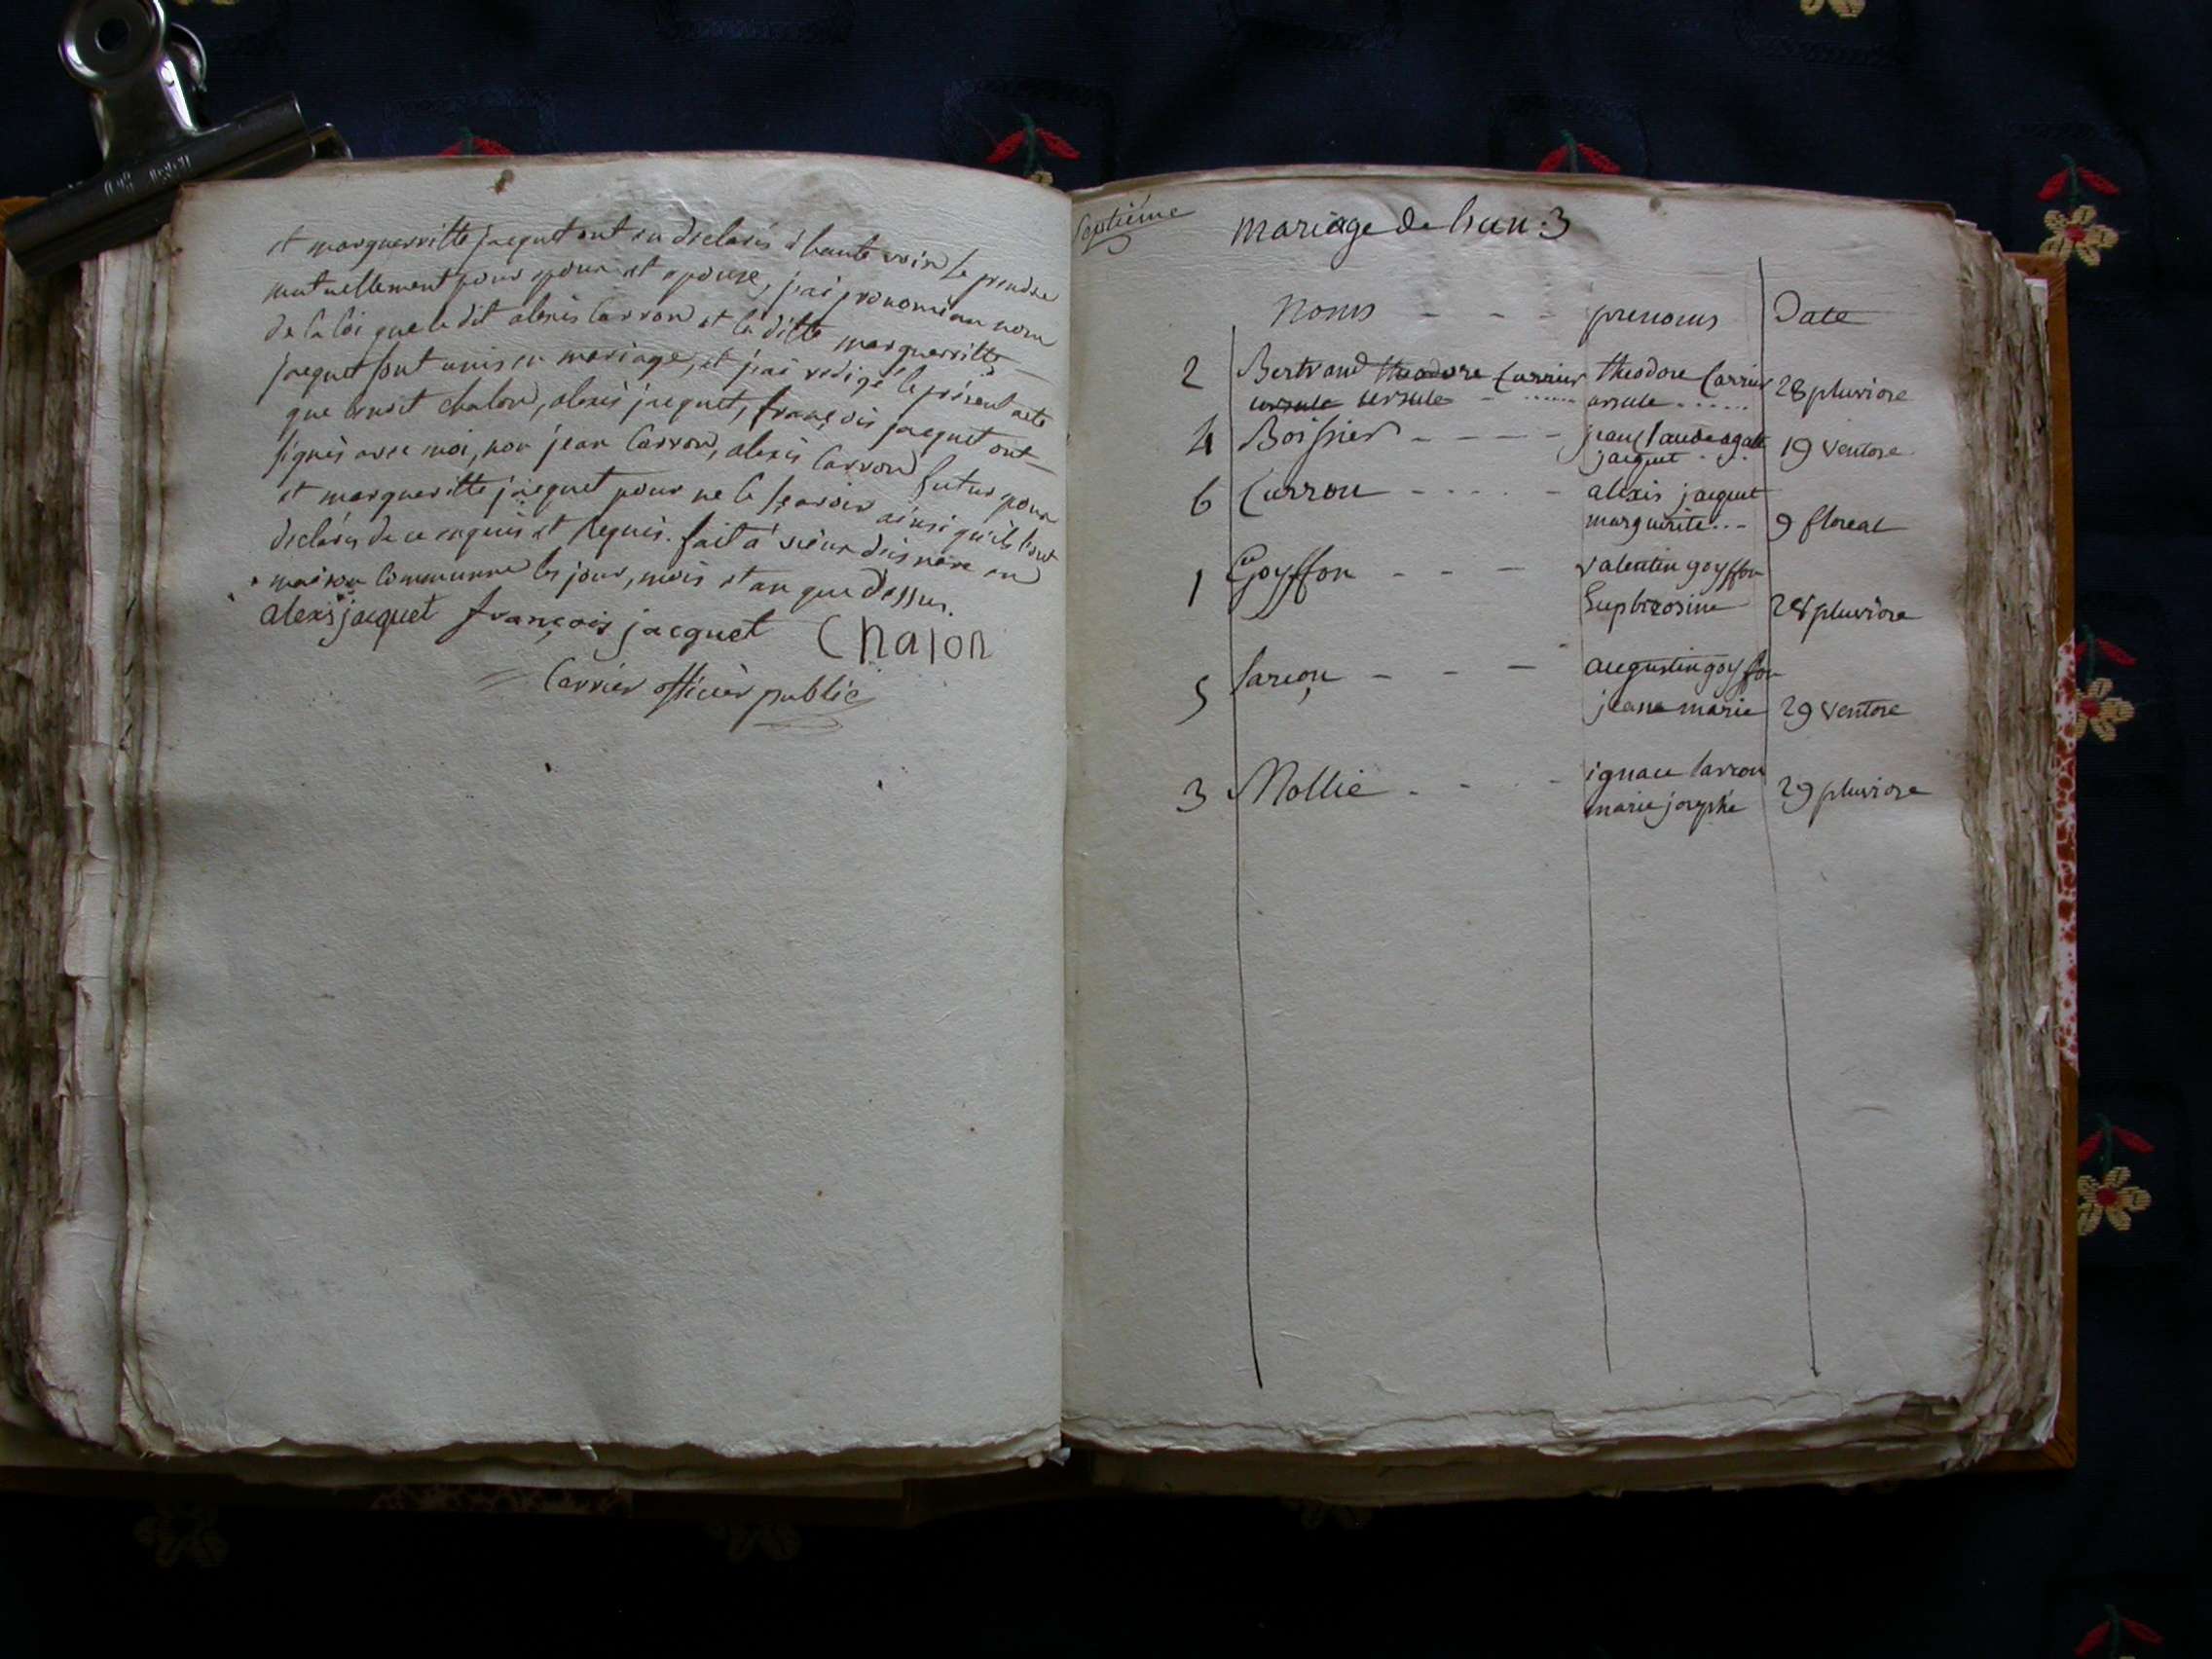 et marguerritte jacquet ont eu declarés à haute voix se prendre
mutuellement pour epoux et epouse, j'ai prononcé au nom
de la loi que le dit alexis Carron et la ditte marguerritte
jacquet sont unis en mariage, et j'ai redigé le présent acte
que benoit chalon, alexis jacquet, françois jacquet ont
signés avec moi, non jean Carron, alexis Carron futur epoux
et margueritte jacquet pour ne le sçavoir ainsi qu'ils l'ont
declarés de ce enquis et requis. fait à vieux d'isenave en
maison commune les jour, mois et an que dessus.
alexis jacquet françois jacquet Chalon
Carrier officier public
septième mariage de l'an: 3
Noms - - - prenoms Date
2 Bertrand theodore Carrier theodore Carrier 28 pluviose
ursule ursule - ...... ursule ......
4 Boissier - - - - - jean Claude agate 19 ventose
jacquet . .
6 Carron - - - . - alexis jacquet
marguerite... 9 floreal
1 Goyffon - - - valentin goyffon
Euphrosine 28 pluviose
5 Larçon - - - augustin goyffon
jeane marie 29 ventose
3 Mollie . - . - ignace Carron
marie josephe 29 pluviose